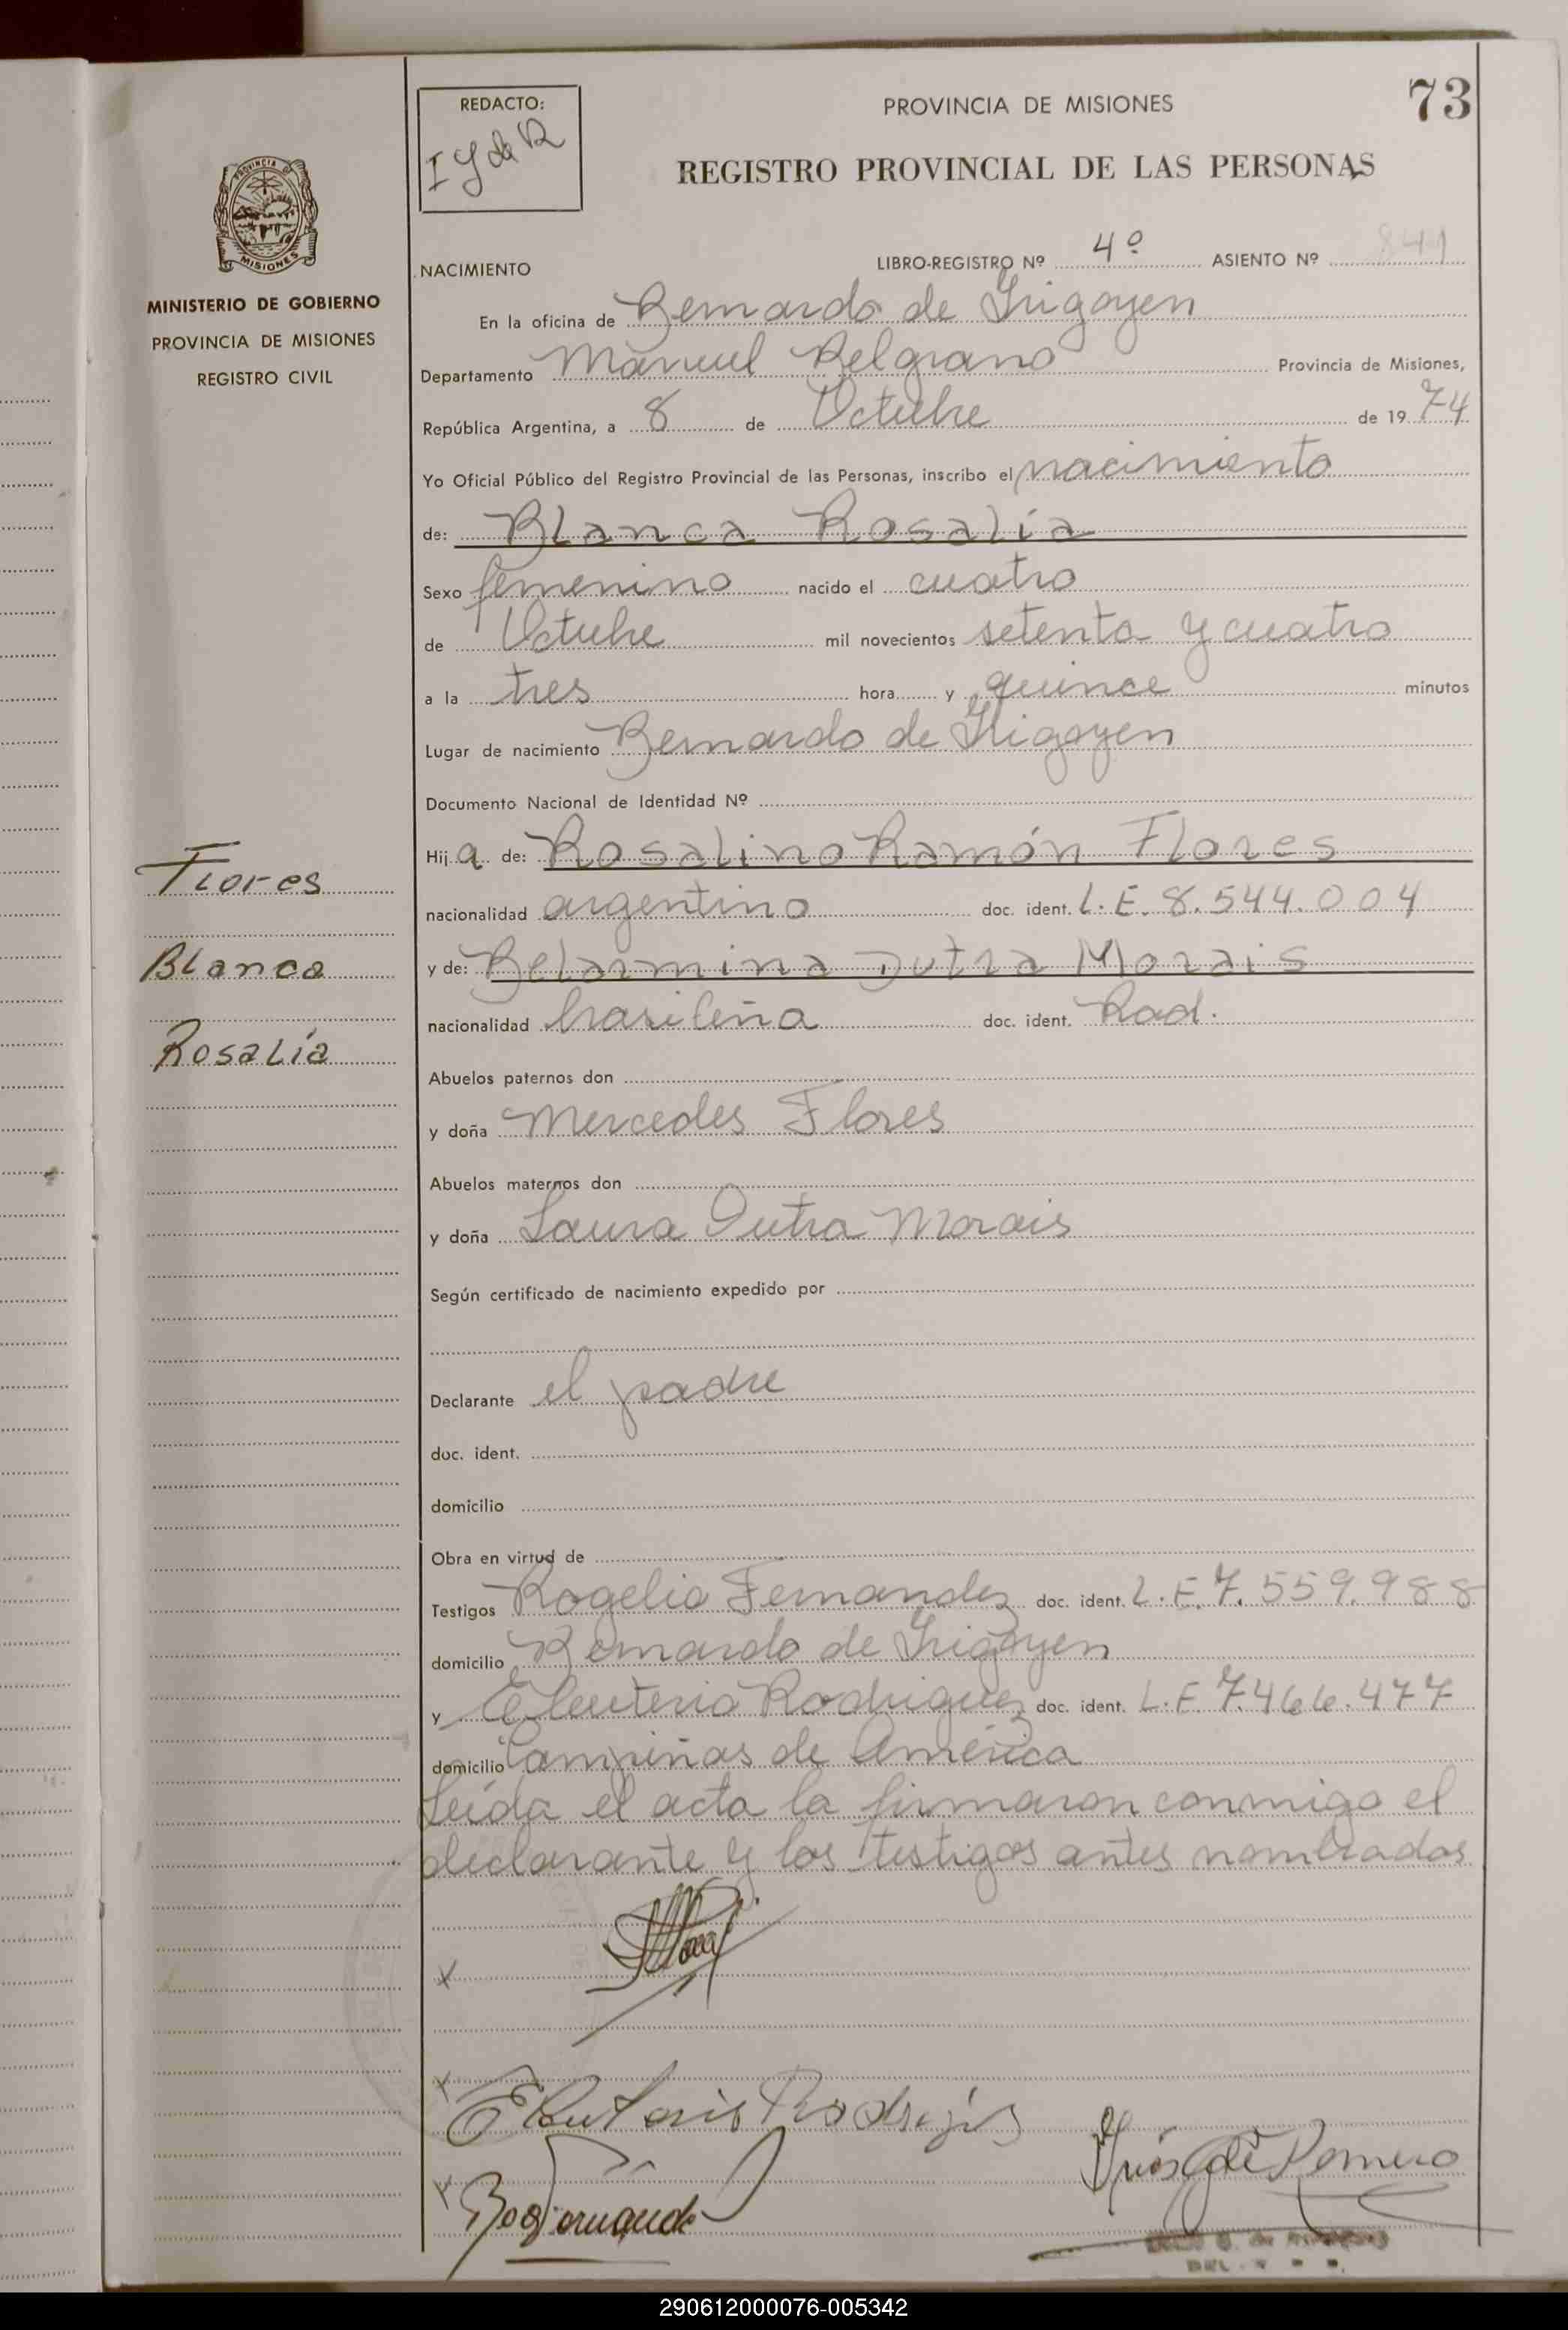 73
REDACTO:
I G de R
PROVINCIA DE MISIONES
REGISTRO PROVINCIAL DE LAS PERSONAS
PROVINCIA
MISIONES
MINISTERIO DE GOBIERNO
PROVINCIA DE MISIONES
REGISTRO CIVIL
NACIMIENTO LIBRO-REGISTRO Nº 4º ASIENTO Nº 841
En la oficina de Bernardo de Irigoyen
Departamento Manuel Belgrano Provincia de Misiones,
República Argentina, a 8 de Octubre de 1974
Yo Oficial Público del Registro Provincial de las Personas, inscribo el nacimiento
de: Blanca Rosalía
Sexo femenino nacido el cuatro
de Octubre mil novecientos setenta y cuatro
a la tres hora y quince minutos
Lugar de nacimiento Bernardo de Irigoyen
Documento Nacional de Identidad Nº
Flores
Blanca
Rosalía
Hija de: Rosalino Ramón Flores
nacionalidad argentino doc. ident. L.E. 8.544.004
y de: Belarmina Dutra Morais
nacionalidad brasileña doc. ident. Rad.
Abuelos paternos don
y doña Mercedes Flores
Abuelos maternos don
y doña Laura Dutra Morais
Según certificado de nacimiento expedido por
Declarante el padre
doc. ident.
domicilio
Obra en virtud de
Testigos Rogelio Fernandez doc. ident. L.E. 7.559.988
domicilio Bernardo de Irigoyen
y Eleuterio Rodriguez doc. ident. L.E. 7.466.477
domicilio Campiñas de América
Leída el acta la firmaron conmigo el
declarante y los testigos antes nombrados
Eleuterio Rodrigues
Inés G de Romero
290612000076-005342